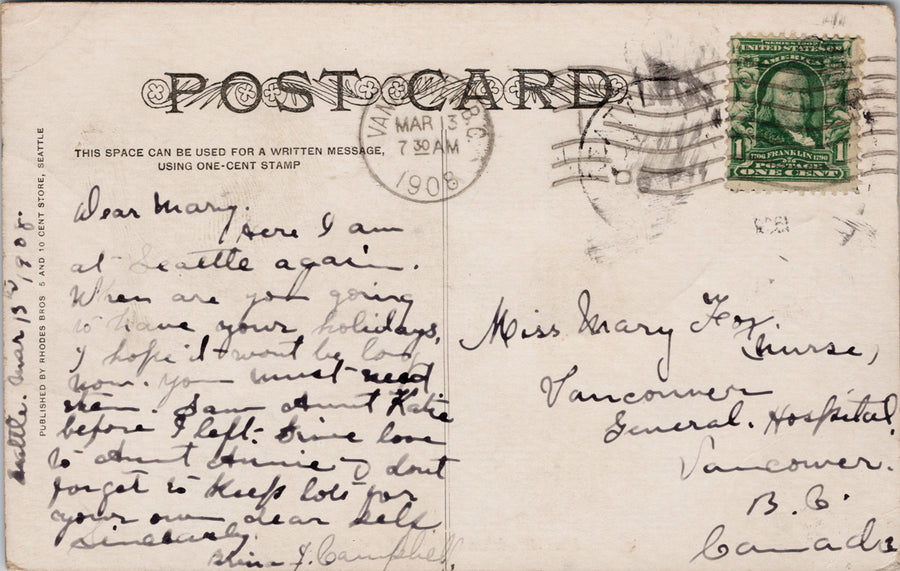 POST CARD
THIS SPACE CAN BE USED FOR A WRITTEN MESSAGE,
USING ONE-CENT STAMP
VAN B.C.
MAR 13
7 30 AM
1908
SERIES 1902
UNITED STATES OF
AMERICA
1706 FRANKLIN 1790
1 1
POSTAGE
ONE CENT
PUBLISHED BY RHODES BROS 5 AND 10 CENT STORE, SEATTLE
Seattle. Mar 13th, 1908.
Dear Mary.
Here I am
at Seattle again.
When are you going
to have your holidays,
I hope it wont be long
now. you must need
them. Saw Aunt Katie
before I left. Give love
to Aunt Annie & dont
forget to keep lots for
your own dear self
Sincerely.
J. Campbell.
Miss Mary Fox.
(Nurse)
Vancouver
General. Hospital.
Vancouver.
B. C.
Canada